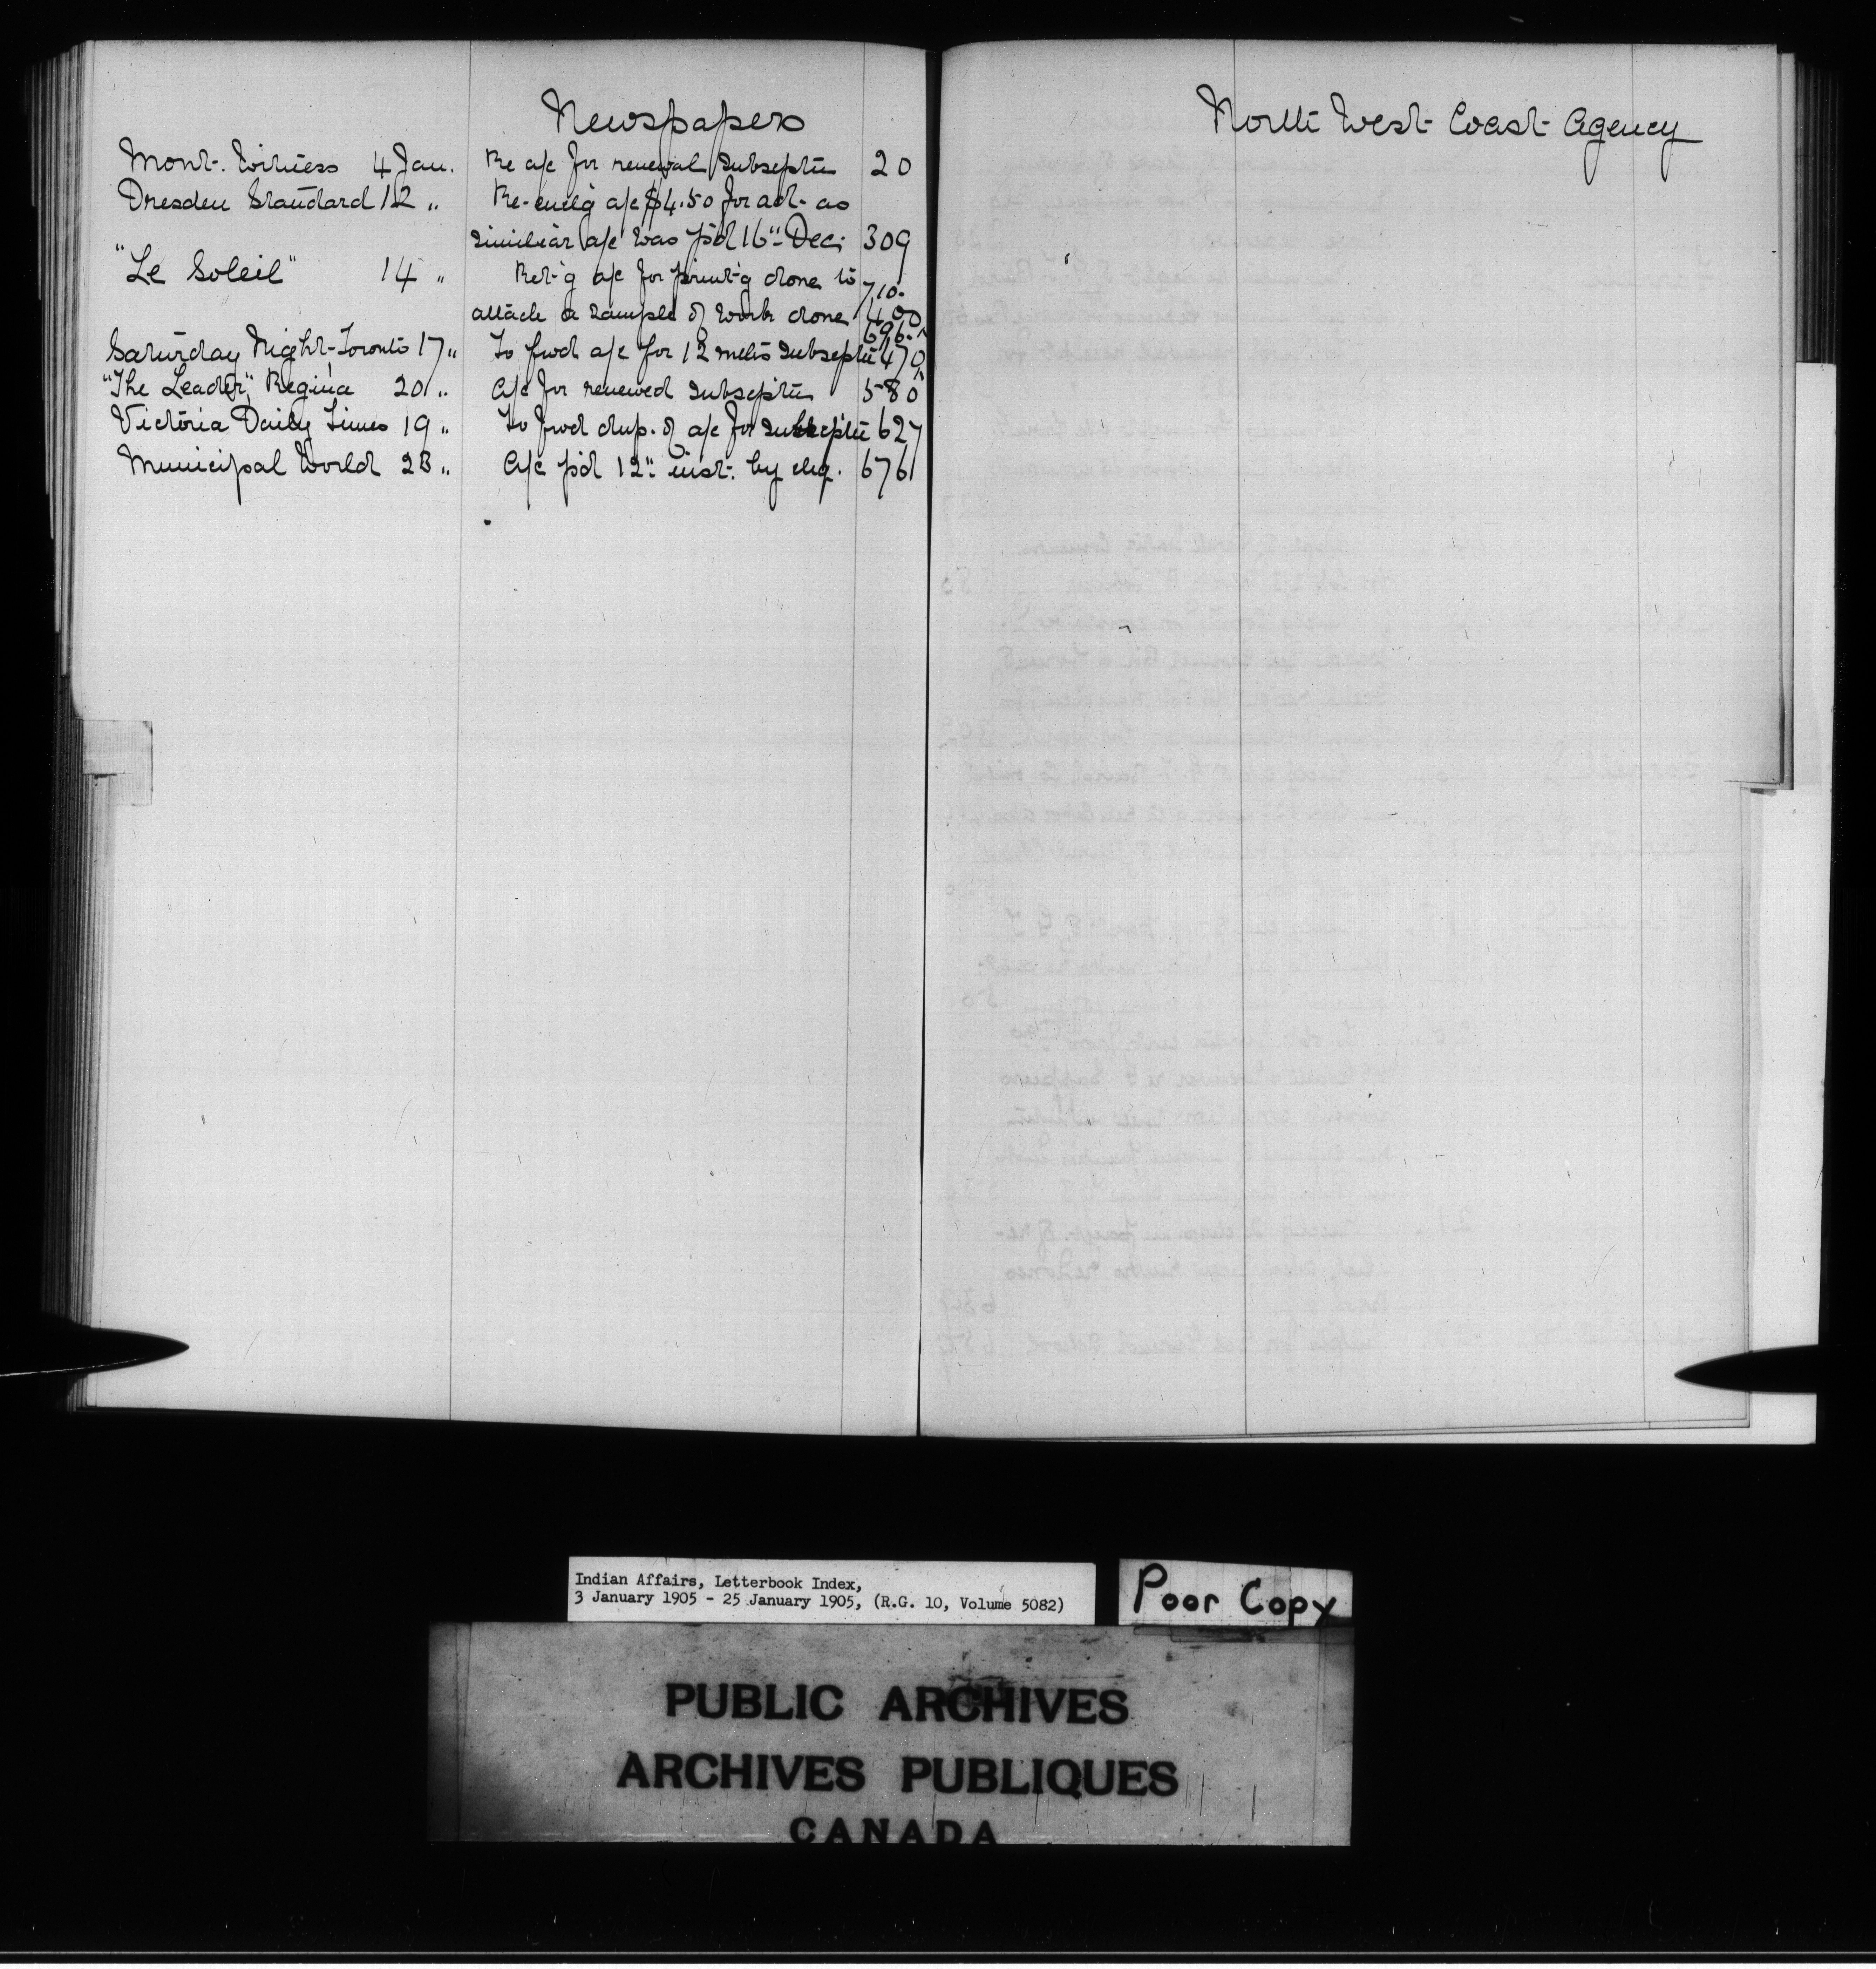 Newspapers
Mont. Witness 4 Jan. Re a/c for renewal Subscptn 20
Dresden Standard 12 " Re-enclg a/c $4.50 for adt- as
similiar a/c was p'd 16" Dec; 309
"Le Soleil" 14 " Ret'g a/c for print'g done to 710.
attach a sample of work done 400
696.
Saturday Night-Toronto 17 " To fwd a/c for 12 mths Subscptn 470
"The Leader", Regina 20 " A/c for renewed Subscptn 580
Victoria Daily Times 19 " To fwd dup. of a/c for Subscptn 627
Municipal World 23 " A/c p'd 12" inst. by chq. 676
North West Coast Agency
Indian Affairs, Letterbook Index,
3 January 1905 - 25 January 1905, (R.G. 10, Volume 5082)
Poor Copy
PUBLIC ARCHIVES
ARCHIVES PUBLIQUES
CANADA